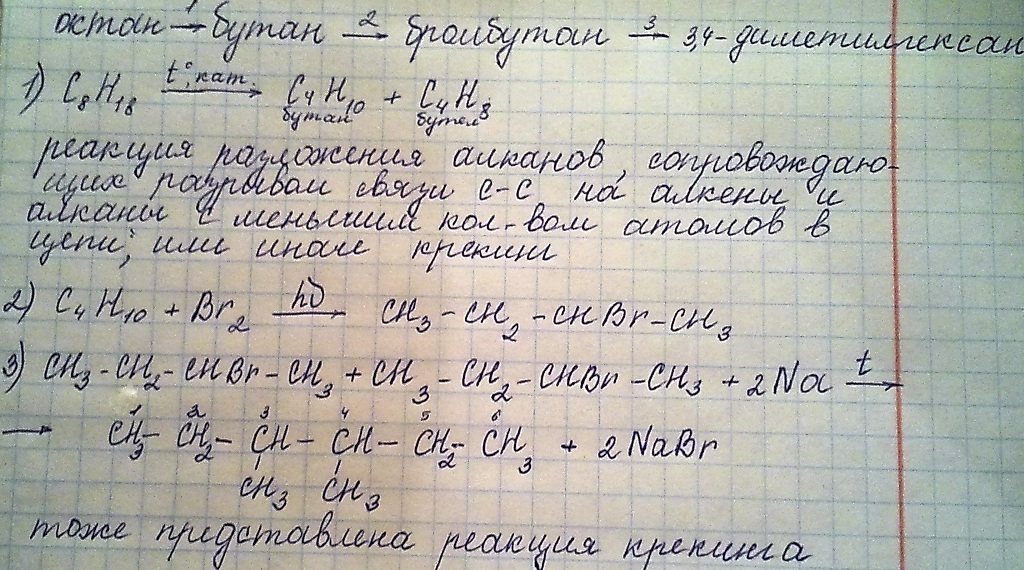 октан 1→ бутан 2→ бромбутан 3→ 3,4-диметилгексан
1) C₈H₁₈ t°, кат.→ C₄H₁₀ + C₄H₈
бутан бутен
реакция разложения алканов, сопровождаю-
щих разрывом связи C-C на алкены и
алканы с меньшим кол-вом атомов в
цепи; или иначе крекинг
2) C₄H₁₀ + Br₂ hν→ CH₃-CH₂-CHBr-CH₃
3) CH₃-CH₂-CHBr-CH₃ + CH₃-CH₂-CHBr-CH₃ + 2Na t→
→ 1CH₃- 2CH₂- 3CH- 4CH- 5CH₂- 6CH₃ + 2NaBr
CH₃ CH₃
тоже представлена реакция крекинга